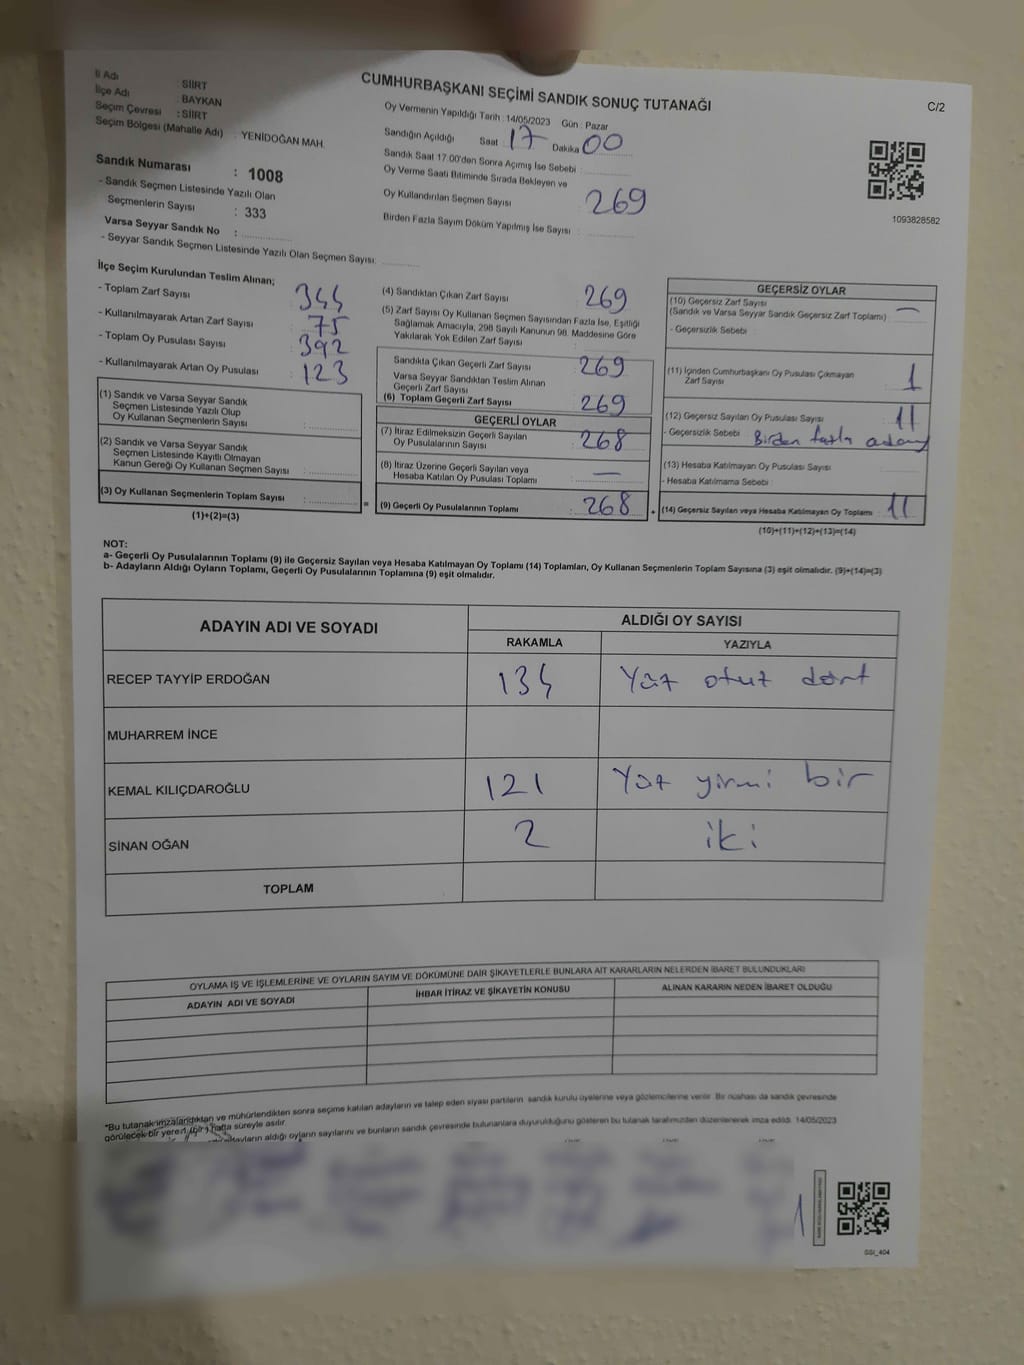 CUMHURBAŞKANI SEÇİMİ SANDIK SONUÇ TUTANAĞI
C/2
İl Adı : SİİRT
İlçe Adı : BAYKAN
Seçim Çevresi : SİİRT
Seçim Bölgesi (Mahalle Adı) : YENİDOĞAN MAH.
Sandık Numarası : 1008
- Sandık Seçmen Listesinde Yazılı Olan
Seçmenlerin Sayısı : 333
Varsa Seyyar Sandık No :
- Seyyar Sandık Seçmen Listesinde Yazılı Olan Seçmen Sayısı:
Oy Vermenin Yapıldığı Tarih : 14/05/2023 Gün : Pazar
Sandığın Açıldığı Saat 17 Dakika 00
Sandık Saat 17.00'den Sonra Açımış İse Sebebi :
Oy Verme Saati Bitiminde Sırada Bekleyen ve
Oy Kullandırılan Seçmen Sayısı : 269
Birden Fazla Sayım Döküm Yapılmış İse Sayısı :
1093828582
İlçe Seçim Kurulundan Teslim Alınan;
- Toplam Zarf Sayısı : 344
- Kullanılmayarak Artan Zarf Sayısı : 75
- Toplam Oy Pusulası Sayısı : 392
- Kullanılmayarak Artan Oy Pusulası : 123
(1) Sandık ve Varsa Seyyar Sandık
Seçmen Listesinde Yazılı Olup
Oy Kullanan Seçmenlerin Sayısı :
(2) Sandık ve Varsa Seyyar Sandık
Seçmen Listesinde Kayıtlı Olmayan
Kanun Gereği Oy Kullanan Seçmen Sayısı :
(3) Oy Kullanan Seçmenlerin Toplam Sayısı : =
(1)+(2)=(3)
(4) Sandıktan Çıkan Zarf Sayısı : 269
(5) Zarf Sayısı Oy Kullanan Seçmen Sayısından Fazla İse, Eşitliği
Sağlamak Amacıyla, 298 Sayılı Kanunun 98. Maddesine Göre
Yakılarak Yok Edilen Zarf Sayısı :
Sandıkta Çıkan Geçerli Zarf Sayısı : 269
Varsa Seyyar Sandıktan Teslim Alınan
Geçerli Zarf Sayısı :
(6) Toplam Geçerli Zarf Sayısı : 269
GEÇERLİ OYLAR
(7) İtiraz Edilmeksizin Geçerli Sayılan
Oy Pusulalarının Sayısı : 268
(8) İtiraz Üzerine Geçerli Sayılan veya
Hesaba Katılan Oy Pusulası Toplamı : —
(9) Geçerli Oy Pusulalarının Toplamı : 268 +
GEÇERSİZ OYLAR
(10) Geçersiz Zarf Sayısı
(Sandık ve Varsa Seyyar Sandık Geçersiz Zarf Toplamı) : —
- Geçersizlik Sebebi :
(11) İçinden Cumhurbaşkanı Oy Pusulası Çıkmayan
Zarf Sayısı : 1
(12) Geçersiz Sayılan Oy Pusulası Sayısı : 11
- Geçersizlik Sebebi : Birden fazla aday
(13) Hesaba Katılmayan Oy Pusulası Sayısı :
- Hesaba Katılmama Sebebi :
(14) Geçersiz Sayılan veya Hesaba Katılmayan Oy Toplamı : 11
(10)+(11)+(12)+(13)=(14)
NOT:
a- Geçerli Oy Pusulalarının Toplamı (9) ile Geçersiz Sayılan veya Hesaba Katılmayan Oy Toplamı (14) Toplamları, Oy Kullanan Seçmenlerin Toplam Sayısına (3) eşit olmalıdır. (9)+(14)=(3)
b- Adayların Aldığı Oyların Toplamı, Geçerli Oy Pusulalarının Toplamına (9) eşit olmalıdır.
ADAYIN ADI VE SOYADI ALDIĞI OY SAYISI
RAKAMLA YAZIYLA
RECEP TAYYİP ERDOĞAN 134 Yüz otuz dört
MUHARREM İNCE
KEMAL KILIÇDAROĞLU 121 Yüz yirmi bir
SİNAN OĞAN 2 iki
TOPLAM
OYLAMA İŞ VE İŞLEMLERİNE VE OYLARIN SAYIM VE DÖKÜMÜNE DAİR ŞİKAYETLERLE BUNLARA AİT KARARLARIN NELERDEN İBARET BULUNDUKLARI
ADAYIN ADI VE SOYADI İHBAR İTİRAZ VE ŞİKAYETİN KONUSU ALINAN KARARIN NEDEN İBARET OLDUĞU
*Bu tutanak imzalandıktan ve mühürlendikten sonra seçime katılan adayların ve talep eden siyasi partilerin sandık kurulu üyelerine veya gözlemcilerine verilir. Bir nüshası da sandık çevresinde
görülecek bir yere 1 (bir ) hafta süreyle asılır.
aldığı oyların sayılarını ve bunların sandık çevresinde bulunanlara duyurulduğunu gösteren bu tutanak tarafımızdan düzenlenerek imza edildi. 14/05/2023
SSI_404